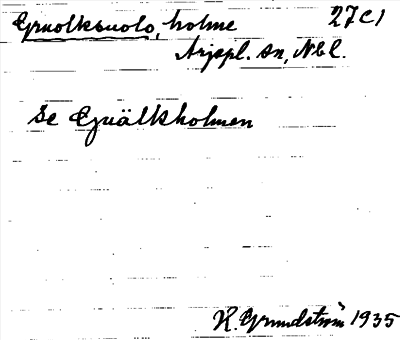 Gruolksuolo, holme 27C1
Arjepl. sn, Nbl.
Se Gruälkholmen
H. Grundström 1935